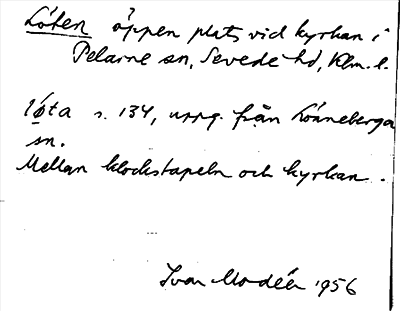 Löten öppen plats vid kyrkan i
Pelarne sn, Sevede hd, Klm. l.
løta s. 134, uppg. från Lönneberga
sn.
Mellan klockstapeln och kyrkan.
Ivar Modéer 1956